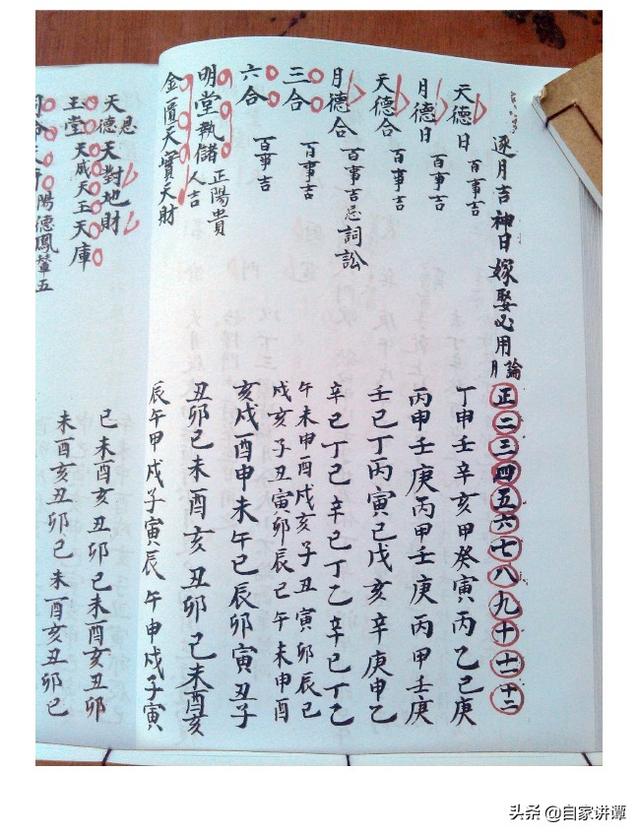 逐月吉神日嫁娶必用論月 正二三四五六七八九十十一十二
天德日 百事吉 丁申壬辛亥甲癸寅丙乙己庚
月德日 百事吉 丙甲壬庚丙甲壬庚丙甲壬庚
天德合 百事吉 壬巳丁丙寅己戊亥辛庚申乙
月德合 百事吉忌詞訟 辛己丁乙辛己丁乙辛己丁乙
三合 百事吉 午未申酉戌亥子丑寅卯辰巳
戌亥子丑寅卯辰巳午未申酉
六合 百事吉 亥戌酉申未午巳辰卯寅丑子
明堂執儲 正陽貴人吉 丑卯巳未酉亥丑卯巳未酉亥
金匱天寶天財 辰午申戌子寅辰午申戌子寅
天德恩天對地財 巳未酉亥丑卯巳未酉亥丑卯
玉堂天威天王天庫 未酉亥丑卯巳未酉亥丑卯巳
陽德鳳輦五
头条 @自家讲谭